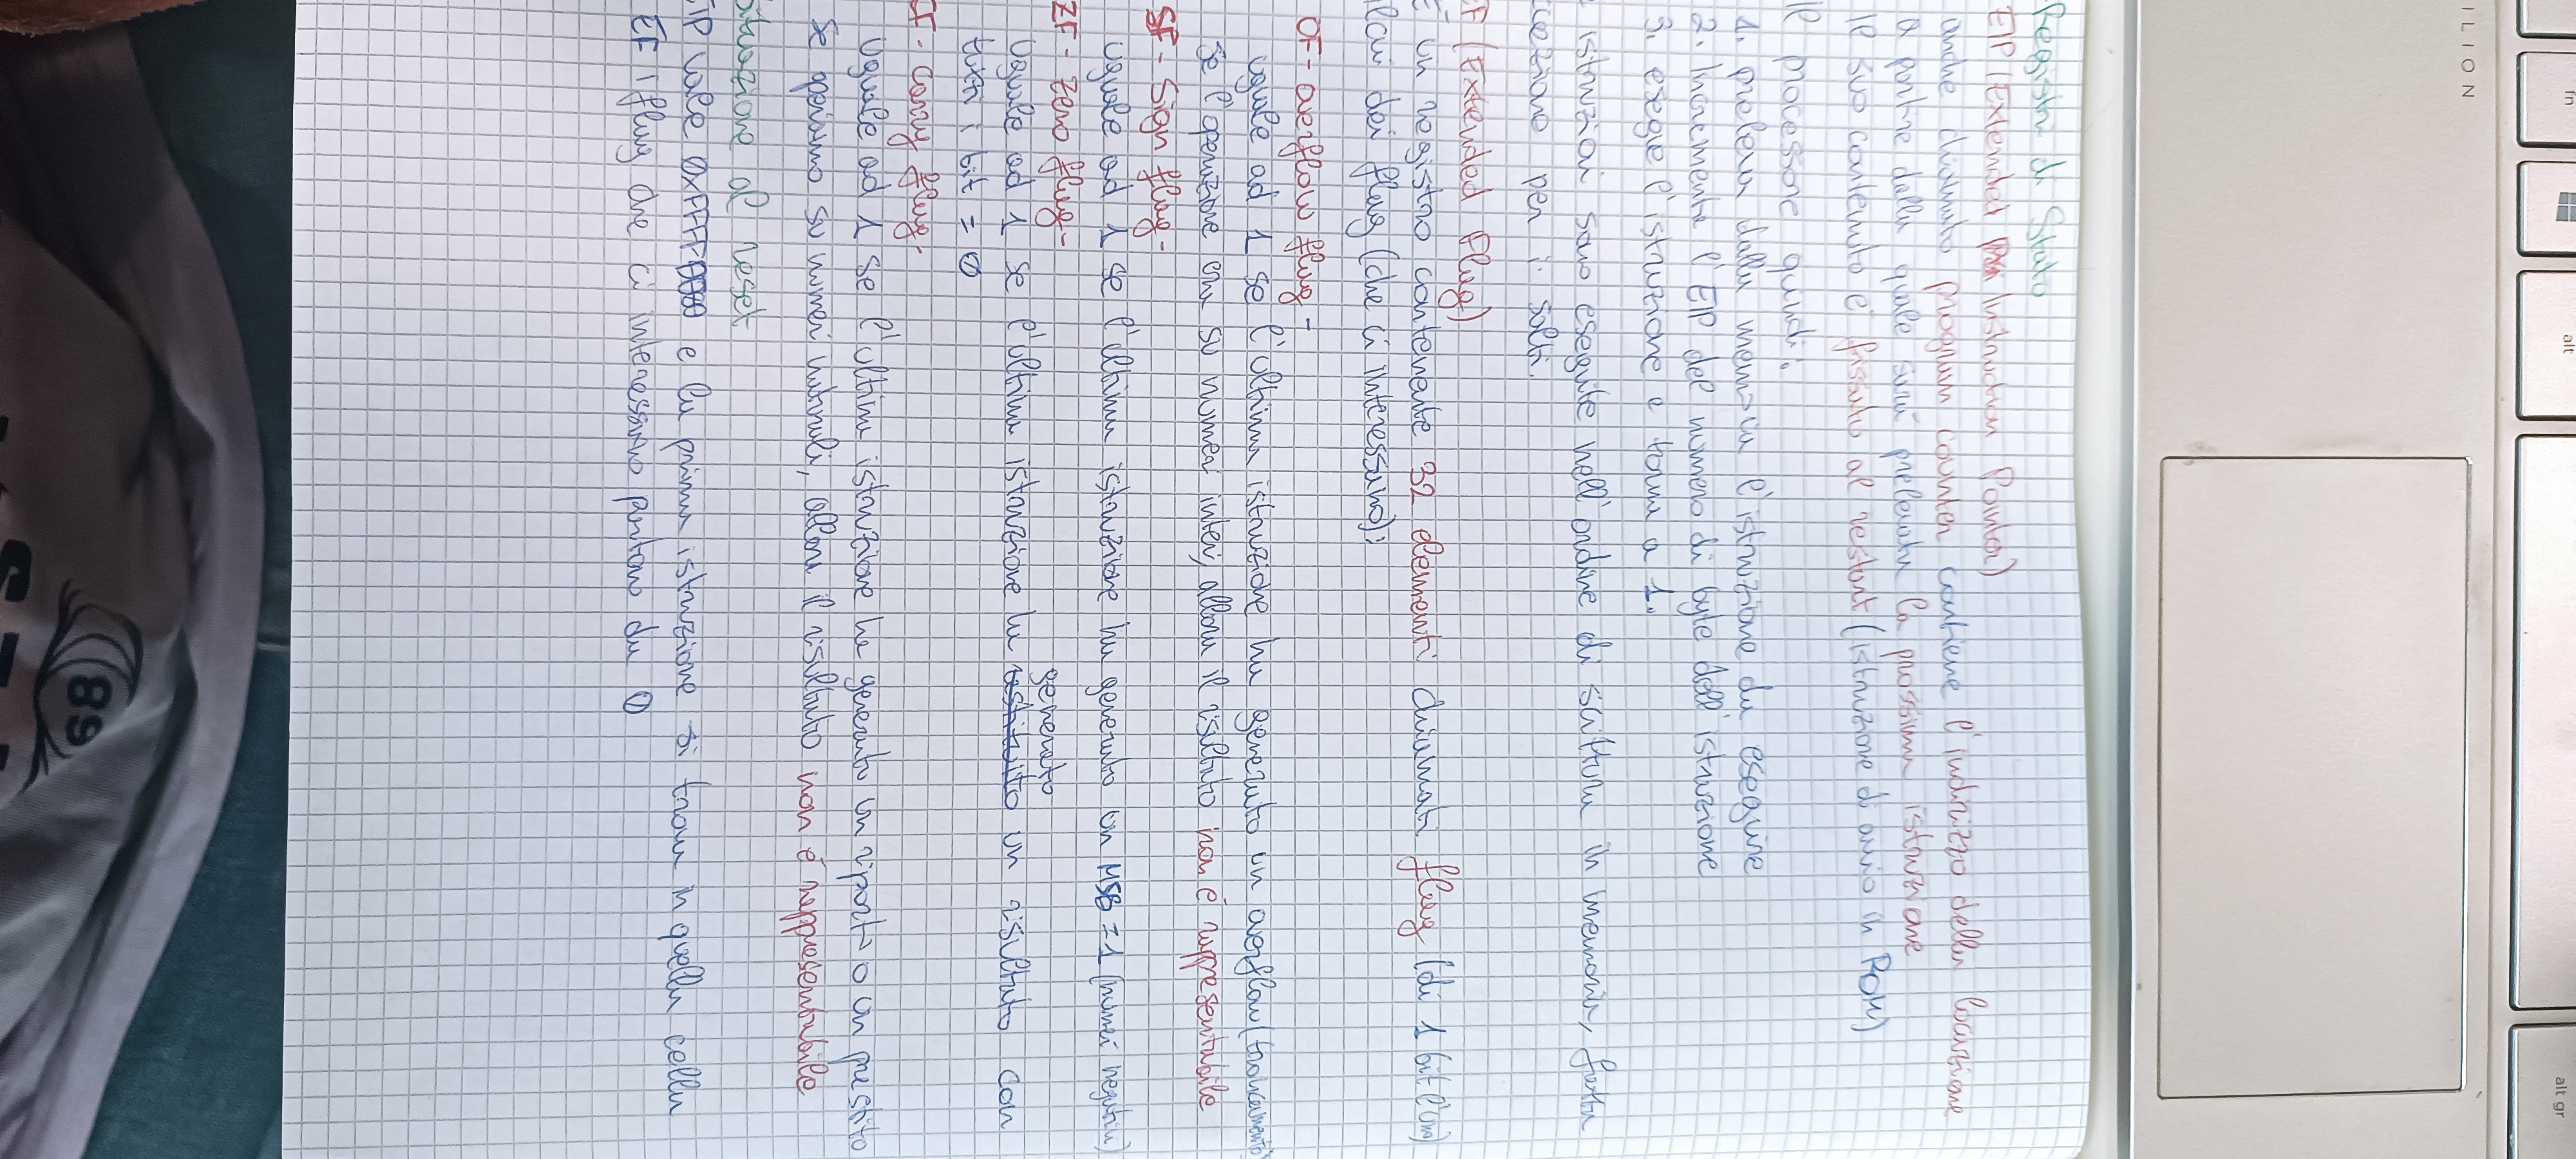 Registri di Stato
EIP (Extended Instruction Pointer)
anche chiamato program counter contiene l'indirizzo della locazione
a partire dalla quale sarà prelevata la prossima istruzione
Il suo contenuto è fissato al restart (istruzione di avvio in ROM)
Il processore quindi:
1. preleva dalla memoria l'istruzione da eseguire
2. Incrementa l'EIP del numero di byte dell'istruzione
3. esegue l'istruzione e torna a 1.
istruzioni sono eseguite nell'ordine di scrittura in memoria, fatta
eccezione per i salti.
EF (Extended Flag)
È un registro contenente 32 elementi chiamati flag (di 1 bit l'uno)
alcuni dei flag (che ci interessano):
OF - overflow flag -
uguale ad 1 se l'ultima istruzione ha generato un overflow (traboccamento)
se l'operazione era su numeri interi, allora il risultato non è rappresentabile
SF - Sign flag -
uguale ad 1 se l'ultima istruzione ha generato un MSB = 1 (numeri negativi)
ZF - zero flag -
generato
uguale ad 1 se l'ultima istruzione ha restituito un risultato con
tutti i bit = 0
CF - carry flag -
uguale ad 1 se l'ultima istruzione ha generato un riporto o un prestito
se operiamo su numeri naturali, allora il risultato non è rappresentabile
Situazione al reset
EIP vale e la prima istruzione si trova in quella cella
EF i flag che ci interessano partono da 0
ILION
fn
alt
alt gr
89